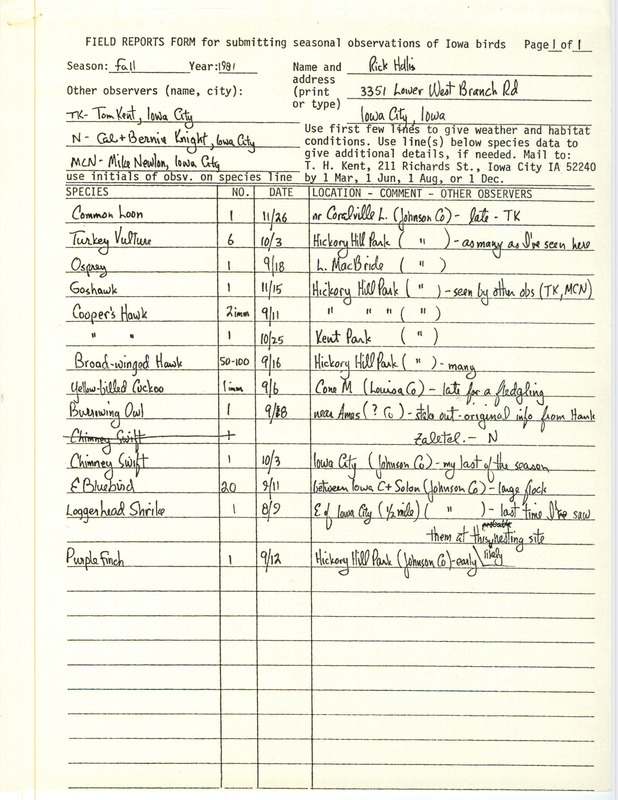 FIELD REPORTS FORM for submitting seasonal observations of Iowa birds Page 1 of 1
Season: Fall Year: 1981 Name and Rick Hollis
address
Other observers (name, city): (print 3351 Lower West Branch Rd
or type)
TK- Tom Kent, Iowa City Iowa City, Iowa
N- Cal + Bernie Knight, Iowa City Use first few lines to give weather and habitat
conditions. Use line(s) below species data to
MCN- Mike Newlon, Iowa City give additional details, if needed. Mail to:
T. H. Kent, 211 Richards St., Iowa City IA 52240
use initials of obsv. on species line by 1 Mar, 1 Jun, 1 Aug, or 1 Dec.
SPECIES NO. DATE LOCATION - COMMENT - OTHER OBSERVERS
Common Loon 1 11/26 nr Coralville L. (Johnson Co) - late - TK
Turkey Vulture 6 10/3 Hickory Hill Park ( " ) - as many as I've seen here
Osprey 1 9/18 L. MacBride ( " )
Goshawk 1 11/15 Hickory Hill Park ( " ) - seen by other obs (TK, MCN)
Cooper's Hawk 2 imm 9/11 " " " ( " )
" " 1 10/25 Kent Park ( " )
Broad-winged Hawk 50-100 9/16 Hickory Hill Park ( " ) - many
Yellow-billed Cuckoo 1 imm 9/6 Cone M (Louisa Co) - late for a fledgling
Burrowing Owl 1 9/8 near Ames (? Co) - stake out - original info from Hank
Chimney Swift 1 Zaletel. - N
Chimney Swift 1 10/3 Iowa City (Johnson Co) - my last of the season
E Bluebird 20 9/11 between Iowa C + Solon (Johnson Co) - large flock
Loggerhead Shrike 1 8/9 E of Iowa City (1/2 mile) ( " ) - last time I've saw
probable
them at this nesting site
likely
Purple Finch 1 9/12 Hickory Hill Park (Johnson Co) - early